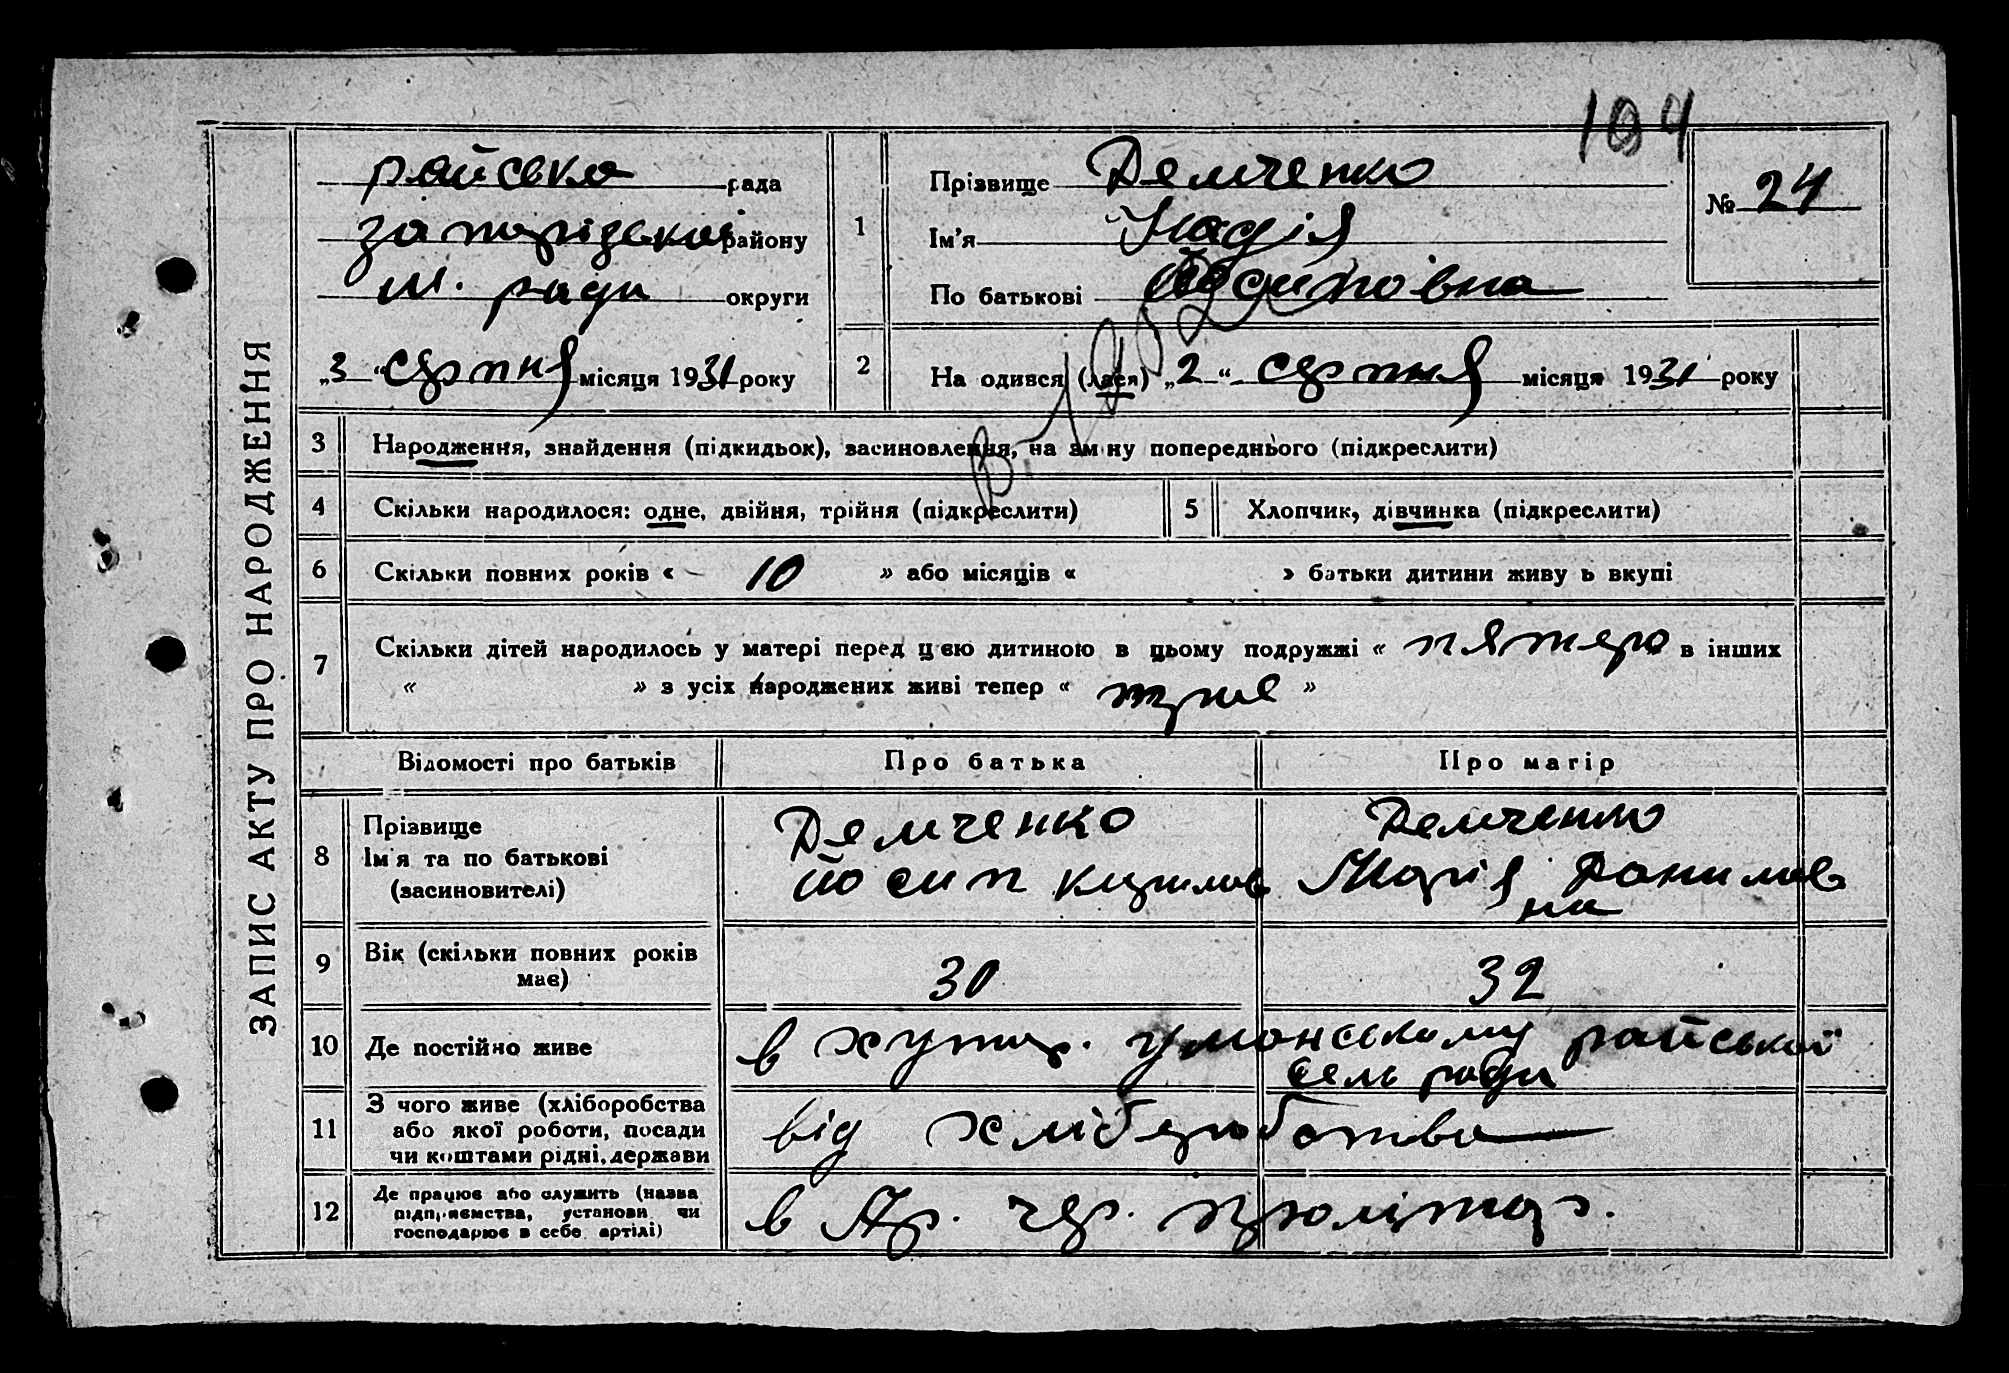 194
ЗАПИС АКТУ ПРО НАРОДЖЕННЯ
райська рада
запорізької району
м. ради округи
„3“ серпня місяця 1931 року
1
Прізвище Демченко
Ім'я Надія
По батькові Йосиповна
№ 24
2
На одився (лася) „2“ серпня місяця 1931 року
3 Народження, знайдення (підкидьок), засиновлення, на зм ну попереднього (підкреслити)
4 Скільки народилося: одне, двійня, трійня (підкреслити) 5 Хлопчик, дівчинка (підкреслити)
6 Скільки повних років « 10 » або місяців « » батьки дитини живу ь вкупі
7 Скільки дітей народилось у матері перед цею дитиною в цьому подружжі « пятеро в інших
« » з усіх народжених живі тепер « троє »
Відомості про батьків Про батька Про матір
8 Прізвище
Ім'я та по батькові
(засиновителі)
Демченко
йосип Кирилов
Демченко
Марія Данилов
на
9 Вік (скільки повних років
має)
30 32
10 Де постійно живе в хутор. Уманському райської
сель ради
11 З чого живе (хліборобства
або якої роботи, посади
чи коштами рідні, держави
від хліборобства
12 Де працює або служить (назва
підприємства, установи чи
господарює в себе артілі)
в Ар. чер. пролітар.